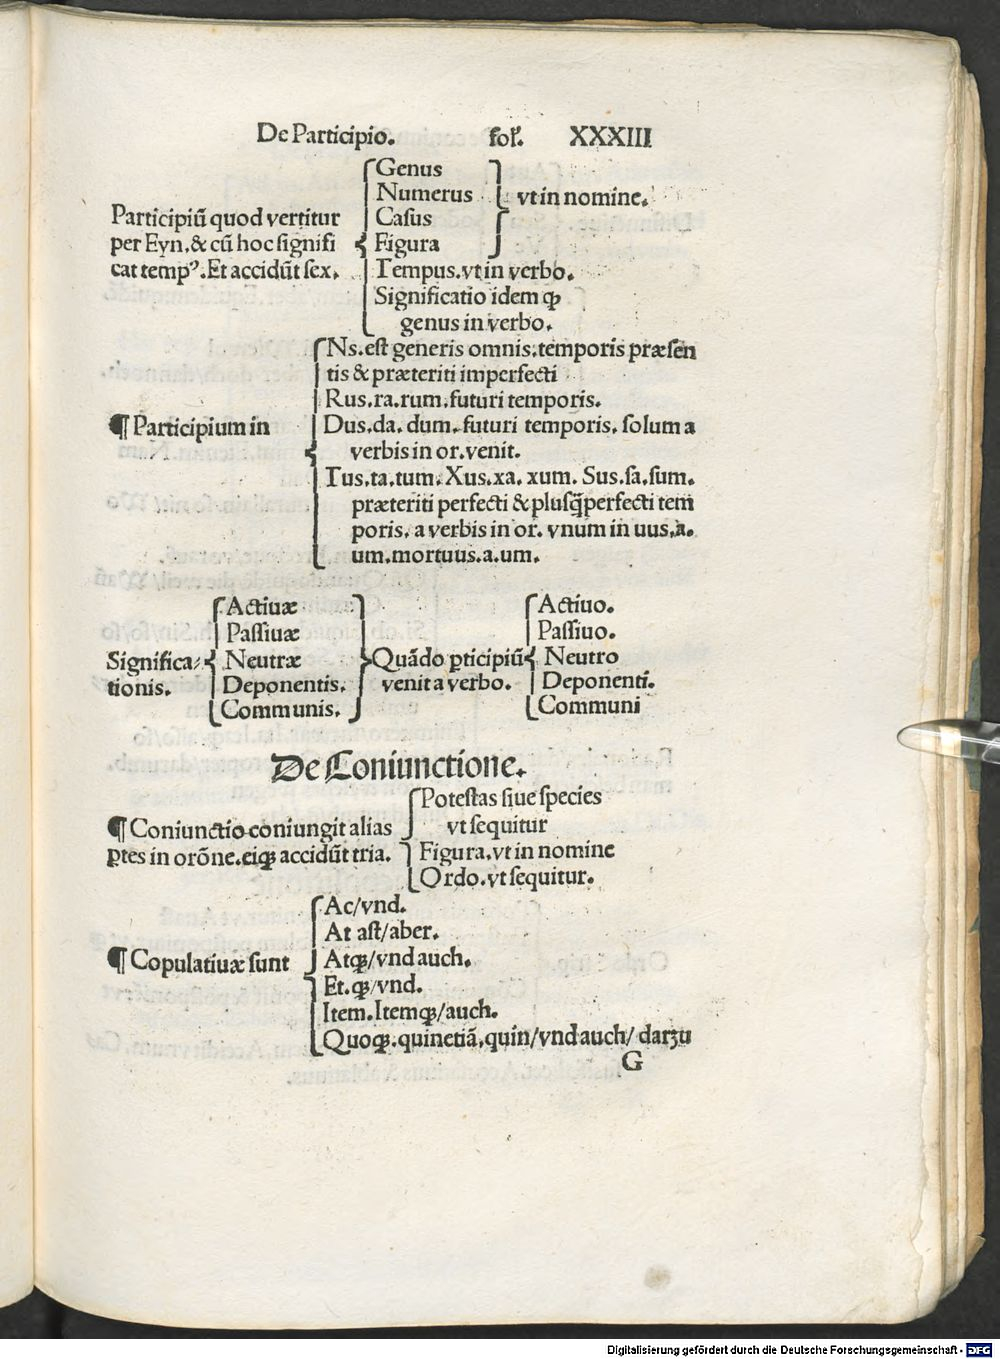 De Participio. fol. XXXIII
Genus
Numerus vt in nomine.
Participiū quod vertitur Casus
per Eyn, & cū hoc signifi Figura
cat tempꝰ. Et accidūt sex. Tempus. vt in verbo.
Significatio idem ꝙ
genus in verbo.
Ns. est generis omnis. temporis præsen
tis & præteriti imperfecti
Rus. ra. rum. futuri temporis.
¶ Participium in Dus. da. dum. futuri temporis. solum a
verbis in or. venit.
Tus. ta. tum. Xus. xa. xum. Sus. sa. sum.
præteriti perfecti & plusq̄perfecti tem
poris. a verbis in or. vnum in uus, a.
um. mortuus. a. um.
Actiuæ Actiuo.
Passiuæ Passiuo.
Significa⸗ Neutræ Quādo ꝑticipiū Neutro
tionis. Deponentis. venit a verbo. Deponenti.
Communis. Communi
De Coniunctione.
Potestas siue species
¶ Coniunctio coniungit alias vt sequitur
ꝑtes in orōne. eiqꝫ accidūt tria. Figura. vt in nomine
Ordo. vt sequitur.
Ac/vnd.
At ast/aber.
¶ Copulatiuæ sunt Atqꝫ/vnd auch.
Et. qꝫ/vnd.
Item. Itemqꝫ/auch.
Quoqꝫ. quinetiā. quin/vnd auch/ darzu
G
Digitalisierung gefördert durch die Deutsche Forschungsgemeinschaft - DFG